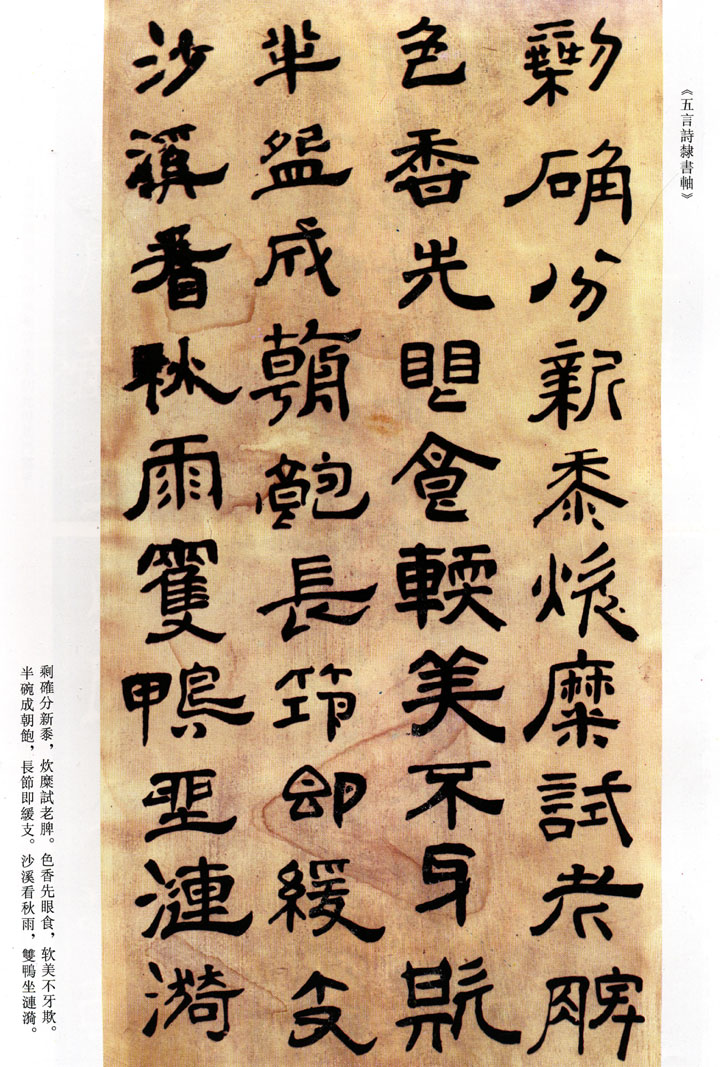 《五言詩隸書軸》
剩确份新
黍炊糜試老脾
色香先眼食軟美不牙欺
半盌成朝飽長節即緩支
沙溪看秋雨雙鴨坐漣漪
剩確分新黍，炊糜試老脾。色香先眼食，软美不牙欺。
半碗成朝飽，長節即緩支。沙溪看秋雨，雙鴨坐漣漪。